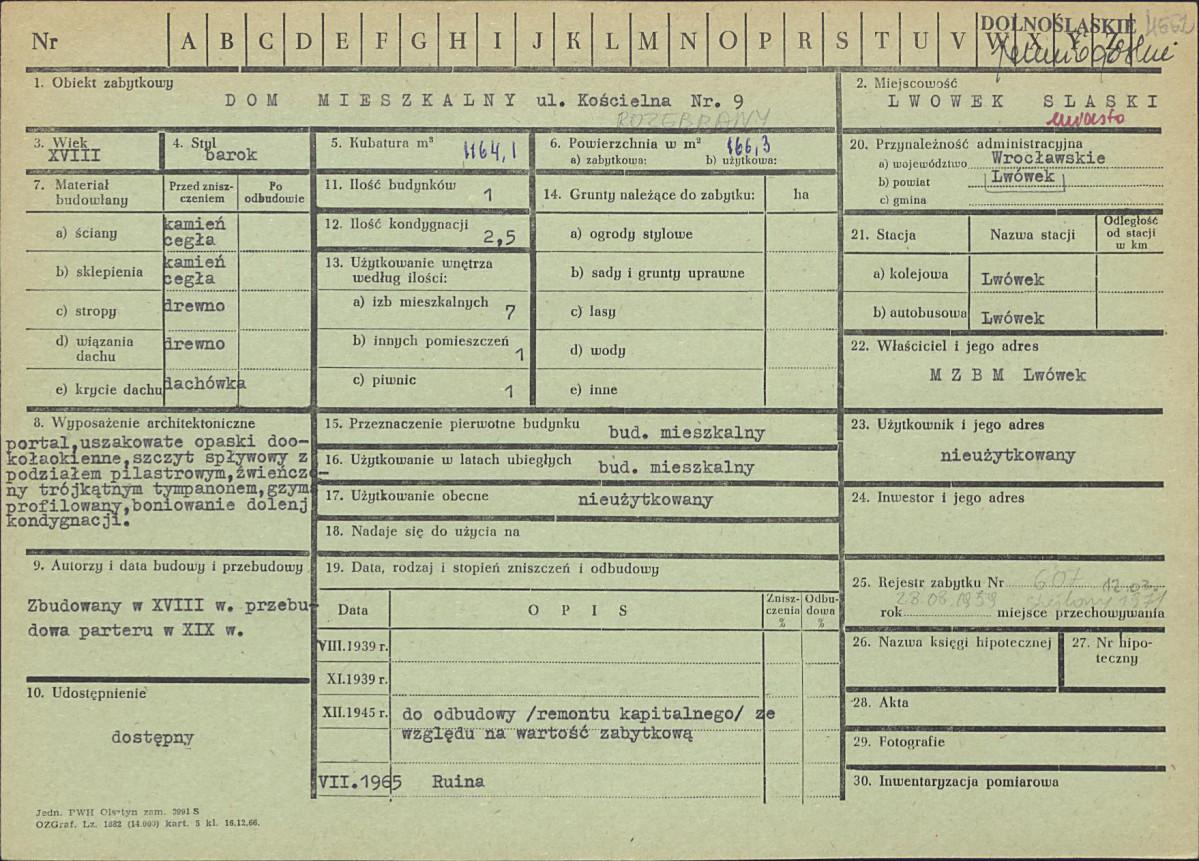 Nr A B C D E F G H I J K L M N O P R S T U V W X Y Z
DOLNOŚLĄSKIE 4552
1. Obiekt zabytkowy
DOM MIESZKALNY ul. Kościelna Nr. 9
ROZEBRANY
2. Miejscowość
LWOWEK SLASKI
miasto
3. Wiek
XVIII
4. Styl
barok
5. Kubatura m³ 1164,1
6. Powierzchnia w m² 166,3
a) zabytkowa: b) użytkowa:
20. Przynależność administracyjna
a) województwo Wrocławskie
b) powiat Lwówek
c) gmina
7. Materiał budowlany
Przed znisz-
czeniem
Po
odbudowie
a) ściany kamień
cegła
b) sklepienia kamień
cegła
c) stropy drewno
d) wiązania
dachu drewno
e) krycie dachu dachówka
11. Ilość budynków 1
12. Ilość kondygnacji 2,5
13. Użytkowanie wnętrza
według ilości:
a) izb mieszkalnych 7
b) innych pomieszczeń 1
c) piwnic 1
14. Grunty należące do zabytku: ha
a) ogrody stylowe
b) sady i grunty uprawne
c) lasy
d) wody
e) inne
21. Stacja Nazwa stacji
Odległość
od stacji
w km
a) kolejowa Lwówek
b) autobusowa Lwówek
22. Właściciel i jego adres
M Z B M Lwówek
8. Wyposażenie architektoniczne
portal,uszakowate opaski doo-
kołaokienne,szczyt spływowy z
podziałem pilastrowym,zwieńczo-
ny trójkątnym tympanonem,gzyms
profilowany,boniowanie dolenj
kondygnacji.
15. Przeznaczenie pierwotne budynku bud. mieszkalny
16. Użytkowanie w latach ubiegłych bud. mieszkalny
17. Użytkowanie obecne nieużytkowany
18. Nadaje się do użycia na
23. Użytkownik i jego adres
nieużytkowany
24. Inwestor i jego adres
9. Autorzy i data budowy i przebudowy
Zbudowany w XVIII w. przebu-
dowa parteru w XIX w.
10. Udostępnienie
dostępny
19. Data, rodzaj i stopień zniszczeń i odbudowy
Data OPIS
Znisz-
czenia
%
Odbu-
dowa
%
VIII.1939 r.
XI.1939 r.
XII.1945 r. do odbudowy /remontu kapitalnego/ ze
względu na wartość zabytkową
VII.1965 Ruina
25. Rejestr zabytku Nr 607 12.03.
28.08.1959 skreślony 1971
rok miejsce przechowywania
26. Nazwa księgi hipotecznej
27. Nr hipo-
teczny
28. Akta
29. Fotografie
30. Inwentaryzacja pomiarowa
Jedn. PWH Olsztyn zam. 3991 S
OZGraf. Lz. 1882 (14.000) kart. 5 kl. 16.12.66.